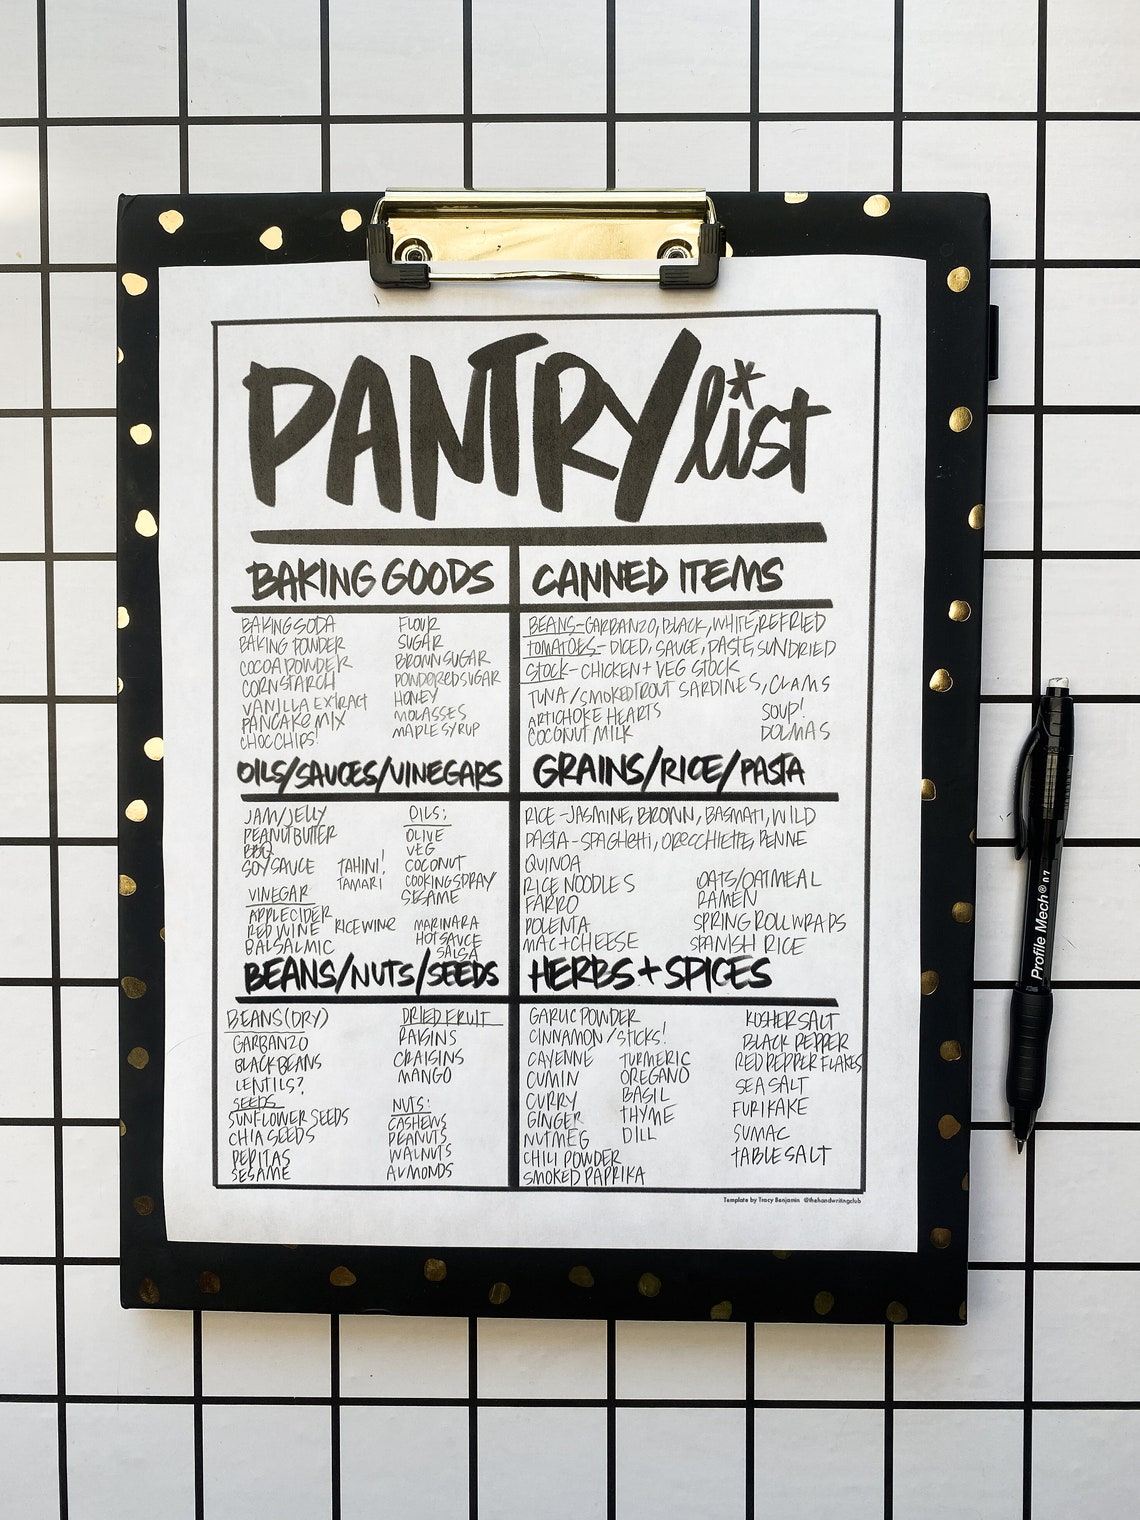 PANTRY list
BAKING GOODS
BAKING SODA
BAKING POWDER
COCOA POWDER
CORNSTARCH
VANILLA EXTRACT
PANCAKE MIX
CHOC CHIPS!
FLOUR
SUGAR
BROWN SUGAR
POWDERED SUGAR
HONEY
MOLASSES
MAPLE SYRUP
CANNED ITEMS
BEANS-GARBANZO, BLACK, WHITE, REFRIED
TOMATOES- DICED, SAUCE, PASTE, SUNDRIED
STOCK- CHICKEN + VEG STOCK
TUNA/SMOKED TROUT SARDINES, CLAMS
ARTICHOKE HEARTS
COCONUT MILK
SOUP!
DOLMAS
OILS/SAUCES/VINEGARS
JAM/JELLY
PEANUT BUTTER
BBQ
SOY SAUCE
TAHINI!
TAMARI
VINEGAR
APPLE CIDER
RED WINE
RICE WINE
BALSALMIC
OILS:
OLIVE
VEG
COCONUT
COOKING SPRAY
SESAME
MARINARA
HOT SAUCE
SALSA
GRAINS/RICE/PASTA
RICE -JASMINE, BROWN, BASMATI, WILD
PASTA - SPAGHETTI, ORECCHIETTE, PENNE
QUINOA
RICE NOODLES
FARRO
POLENTA
MAC + CHEESE
OATS/OATMEAL
RAMEN
SPRING ROLL WRAPS
SPANISH RICE
BEANS/NUTS/SEEDS
BEANS (DRY)
GARBANZO
BLACK BEANS
LENTILS?
SEEDS
SUNFLOWER SEEDS
CHIA SEEDS
PEPITAS
SESAME
DRIED FRUIT
RAISINS
CRAISINS
MANGO
NUTS:
CASHEWS
PEANUTS
WALNUTS
ALMONDS
HERBS + SPICES
GARLIC POWDER
CINNAMON/STICKS!
CAYENNE
CUMIN
CURRY
GINGER
NUTMEG
CHILI POWDER
SMOKED PAPRIKA
TURMERIC
OREGANO
BASIL
THYME
DILL
KOSHER SALT
BLACK PEPPER
RED PEPPER FLAKES
SEA SALT
FURIKAKE
SUMAC
TABLE SALT
Template by Tracy Benjamin @thehandwritingclub
Profile Mech® 0.7